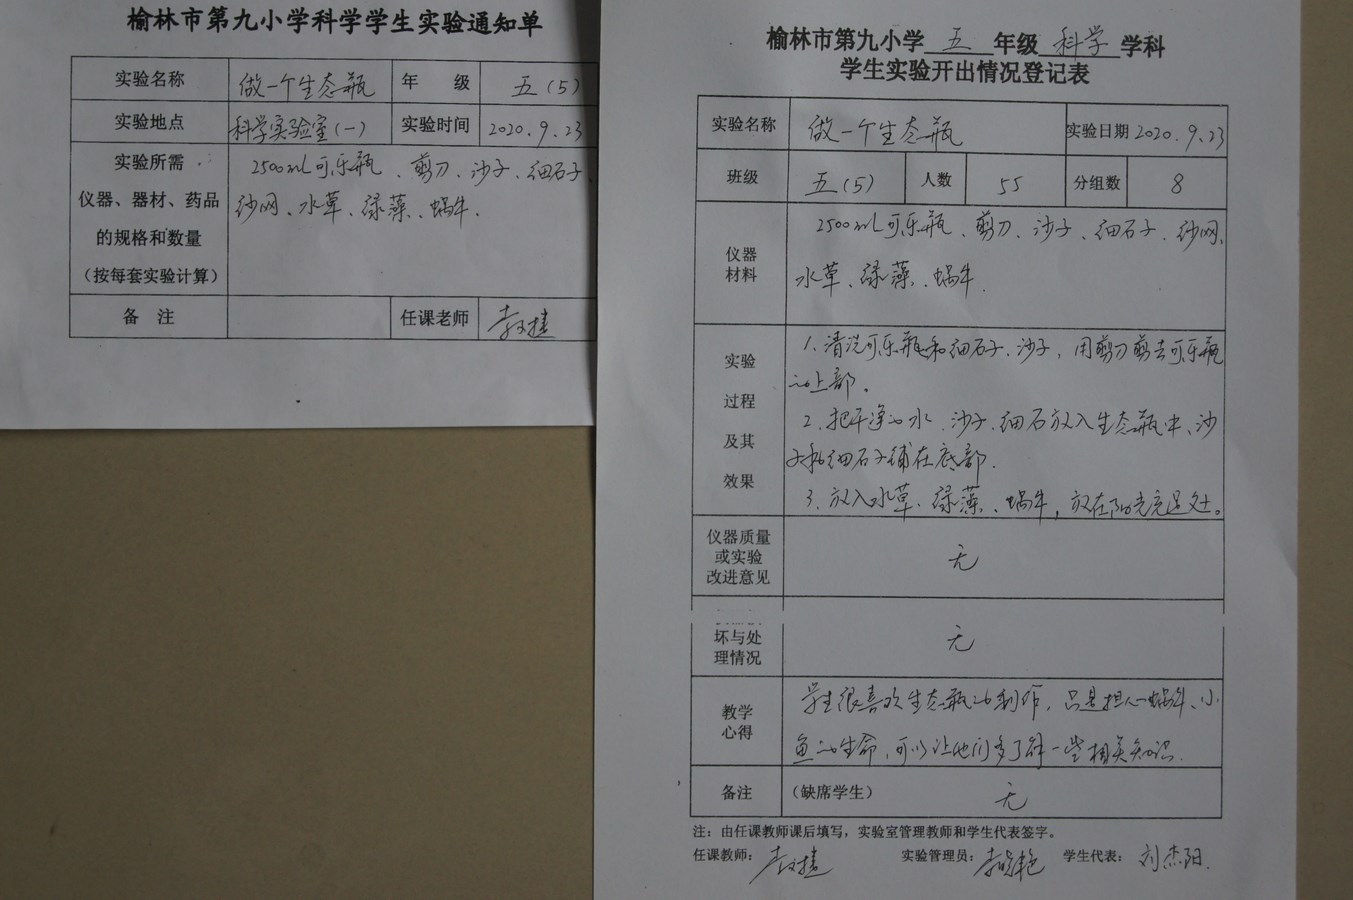 榆林市第九小学科学学生实验通知单
实验名称 做一个生态瓶 年 级 五(5)
实验地点 科学实验室(一) 实验时间 2020.9.23
实验所需
仪器、器材、药品
的规格和数量
(按每套实验计算)
2500mL可乐瓶、剪刀、沙子、细石子、
纱网、水草、绿藻、蜗牛.
备 注 任课老师
榆林市第九小学 五 年级 科学 学科
学生实验开出情况登记表
实验名称 做一个生态瓶 实验日期 2020.9.23
班级 五(5) 人数 55 分组数 8
仪器
材料
2500mL可乐瓶、剪刀、沙子、细石子、纱网、
水草、绿藻、蜗牛.
实验
过程
及其
效果
1.清洗可乐瓶和细石子、沙子,用剪刀剪去可乐瓶
的上部.
2.把干净的水、沙子、细石放入生态瓶中、沙
子和细石子铺在底部.
3.放入水草、绿藻、蜗牛,放在阳光充足处。
仪器质量
或实验
改进意见
无
坏与处
理情况
无
教学
心得
学生很喜欢生态瓶的制作,只是担心蜗牛、小
鱼的生命,可以让他们多了解一些相关知识.
备注 (缺席学生) 无
注:由任课教师课后填写,实验室管理教师和学生代表签字。
任课教师: 实验管理员: 学生代表: 刘杰阳.